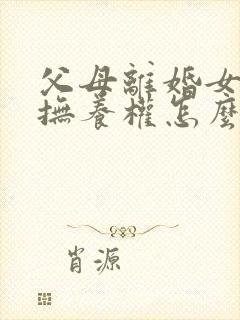 父母離婚女
撫養權怎麼
肖源